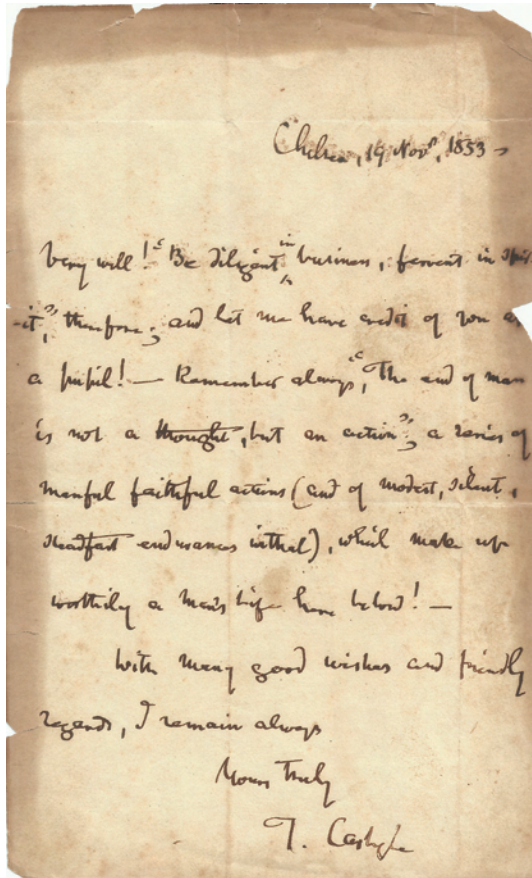 Chelsea, 19 Novr, 1853 –
Very well! "Be diligent in business, fervent in spir-
-it", therefore; and let me have credit of you as
a pupil! — Remember always, "The end of man
is not a thought, but an action", a series of
manful faithful actions (and of modest, silent,
steadfast endurances withal), which make up
worthily a man's life here below! —
With many good wishes and friendly
regards, I remain always
Yours truly
T. Carlyle